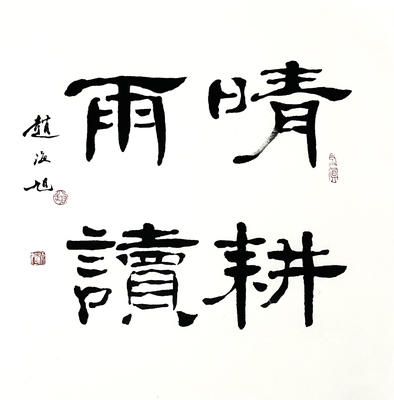 晴耕
雨讀
趙海旭